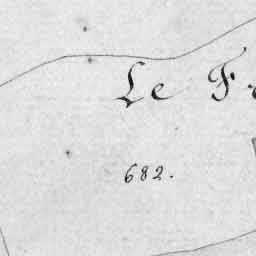 Le F
682.